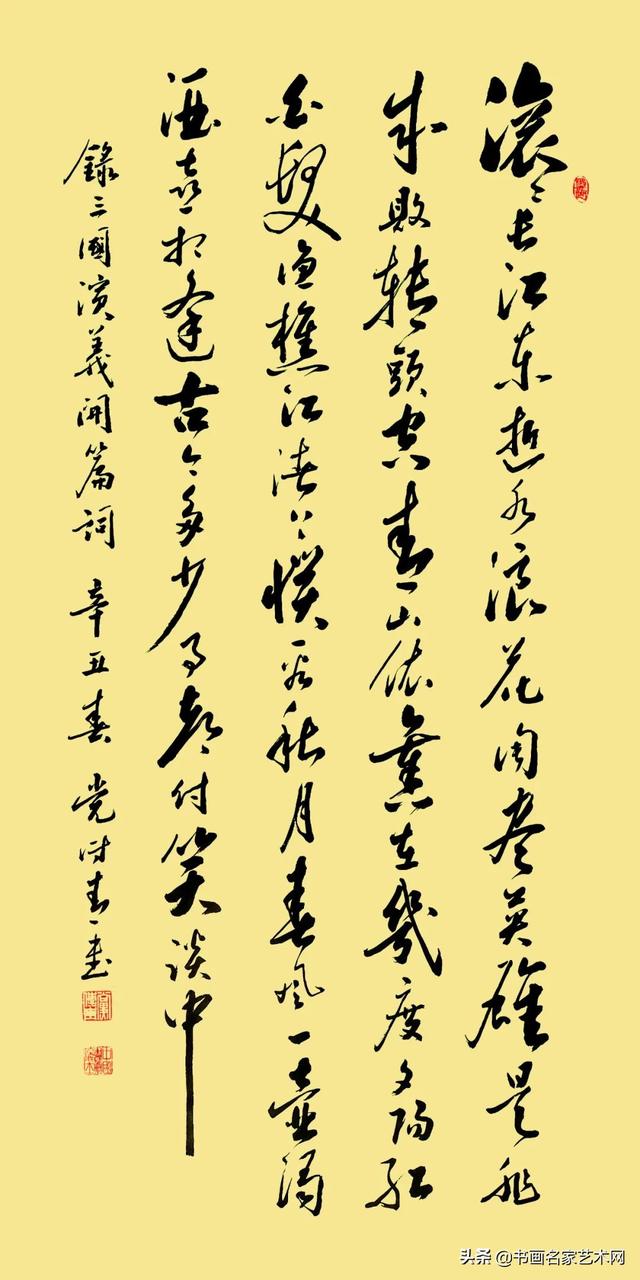 滚〻长江东逝水浪花淘尽英雄是非
成败转頭空青山依舊在幾度夕阳红
白髮渔樵江渚上惯看秋月春风一壶濁
酒喜相逢古今多少事都付笑谈中
錄三國演義開篇词 辛丑春 党
头条 @书画名家艺术网